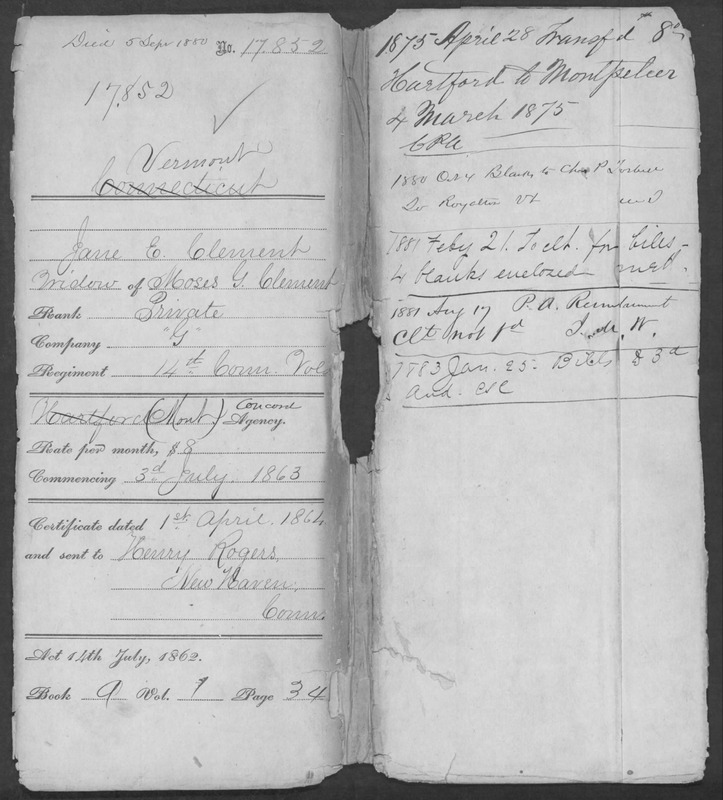 Died 5 Sept 1880 No. 17.852
17.852
Vermont
Connecticut
Jane E. Clement
Widow of Moses G. Clement
Rank Private
Company "G"
Regiment 14th Conn. Vols
Hartford (Mont.) Concord Agency.
Rate per month, $8
Commencing 3d July. 1863
Certificate dated 1st April. 1864
and sent to Henry Rogers,
New Haven,
Conn.
Act 14th July, 1862.
Book 9 Vol. 1 Page 34
1875 April 28 Transf'd
Hartford to Montpelier
4 March 1875
1880 Blanks to P
So Royalton Vt
1881 Feby 21. for bills
4 blanks enclosed
1881 Aug 17 P. A.
Clt not pd W.
1883 Jan. 25. 3d
Aud.